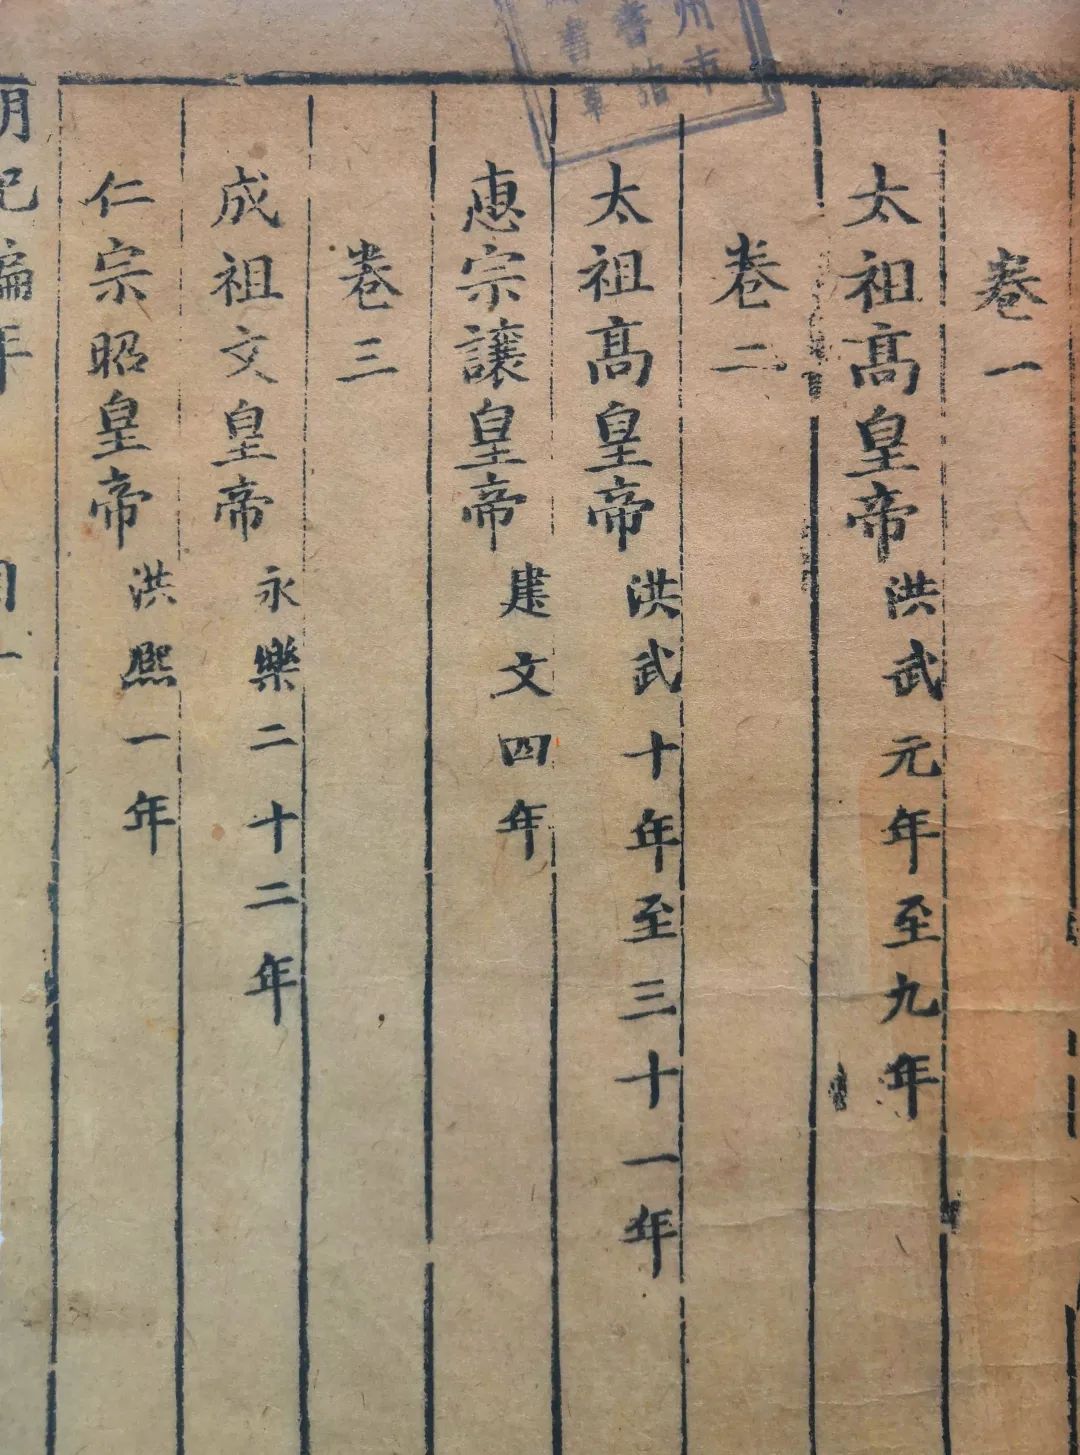 卷一
太祖高皇帝洪武元年至九年
卷二
太祖高皇帝洪武十年至三十一年
惠宗讓皇帝建文四年
卷三
成祖文皇帝永樂二十二年
仁宗昭皇帝洪熙一年
明紀編年
州市
書館
書章